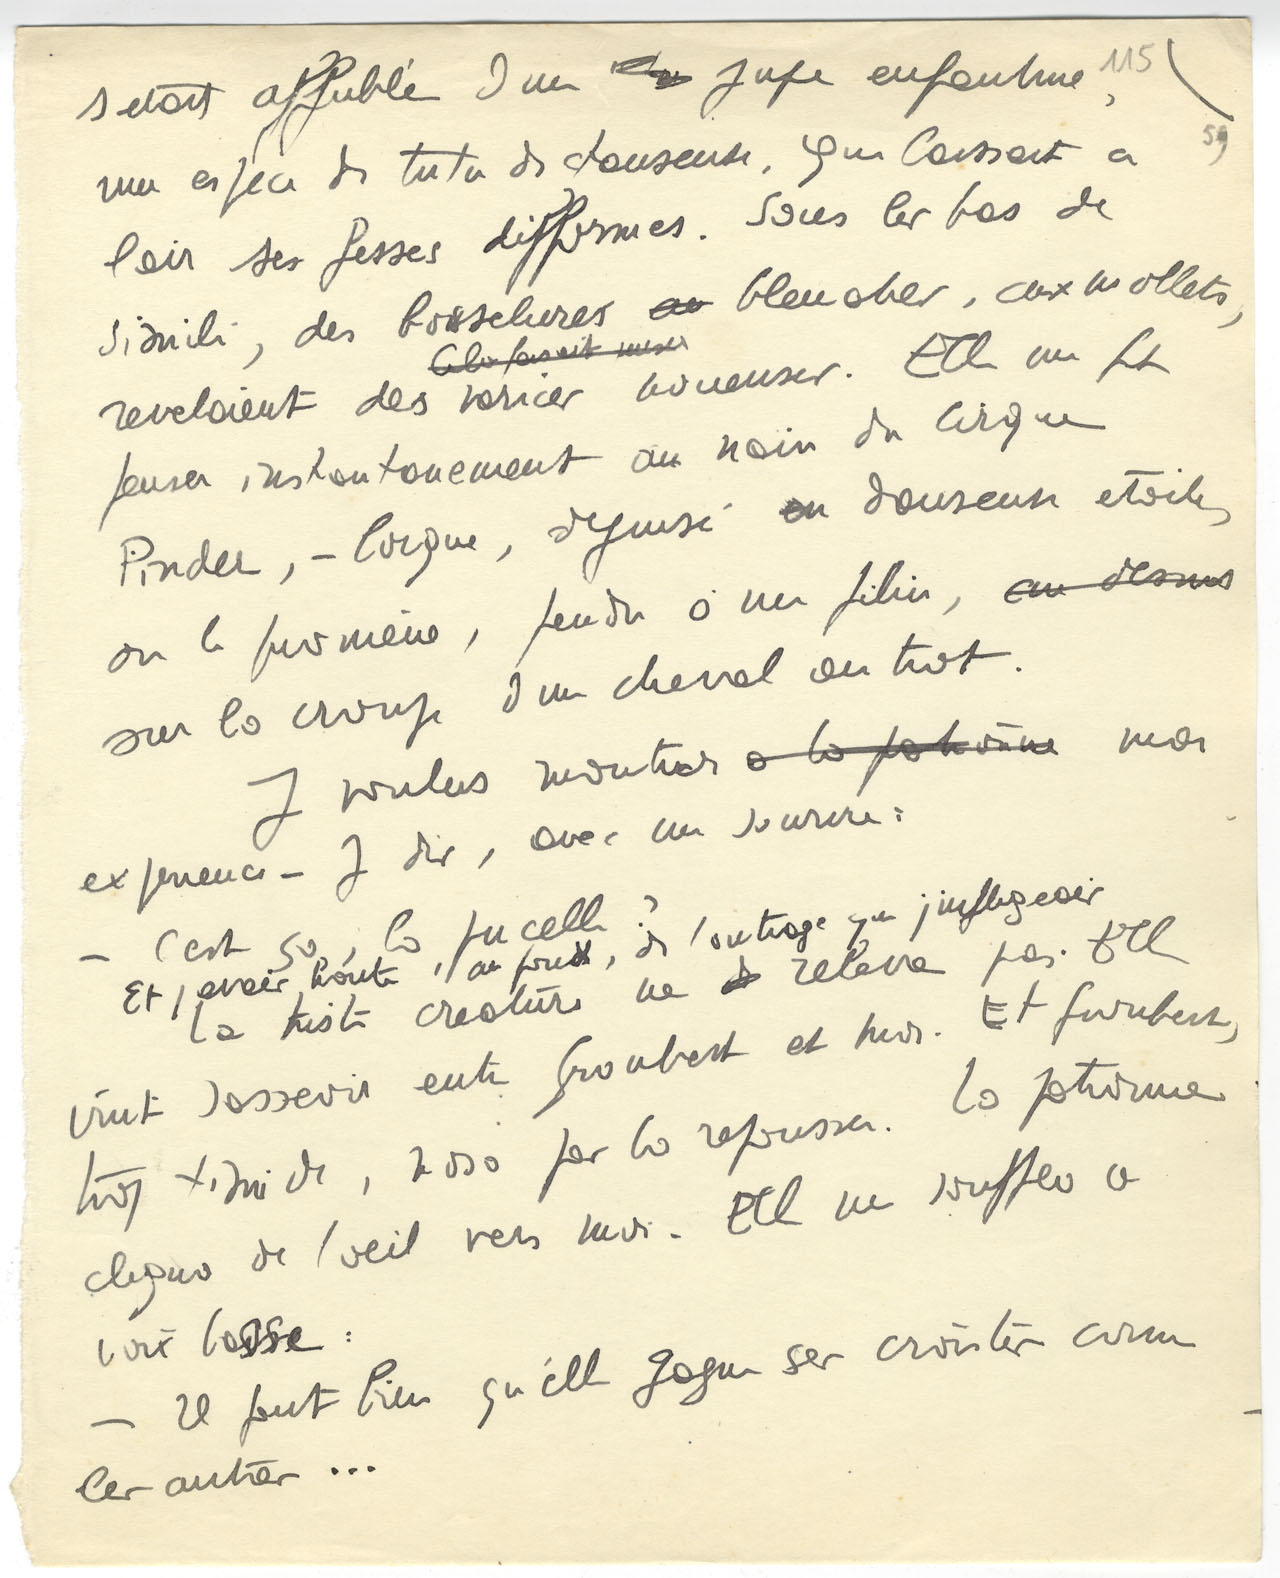 115
59
s'etait affublé d'un jupe enfantine,
une espece de tutu de danseuse, qui laissait a
loir ses fesses difformes. Sous les bas de
simili, des bosselures en bleuatres, aux mollets,
cela faisait
revelaient des varices noueuses. Elle me fit
penser instantanement au nain du cirque
Pinder, – lorque, deguisé en danseuse etoile,
on le promène, pendu à un filin, au dessus
sur la croupe d'un cheval au trot.
Je voulus montrer a la patronne mon
experience – Je dis, avec un sourire :
– C'est ça, la pucelle ?
Et j'avais honte, au fond, de l'outrage que j'infligeais
La triste creature ne releva pas. Elle
vint s'asseoir entre Froubert et moi. Et Froubert,
trop timide, n'osa pas la repousser. La patronne
cligna de l'oeil vers moi. Elle me souffla a
voix basse :
– Il faut bien qu'elle gagne ses croûtes comme
les autres ...